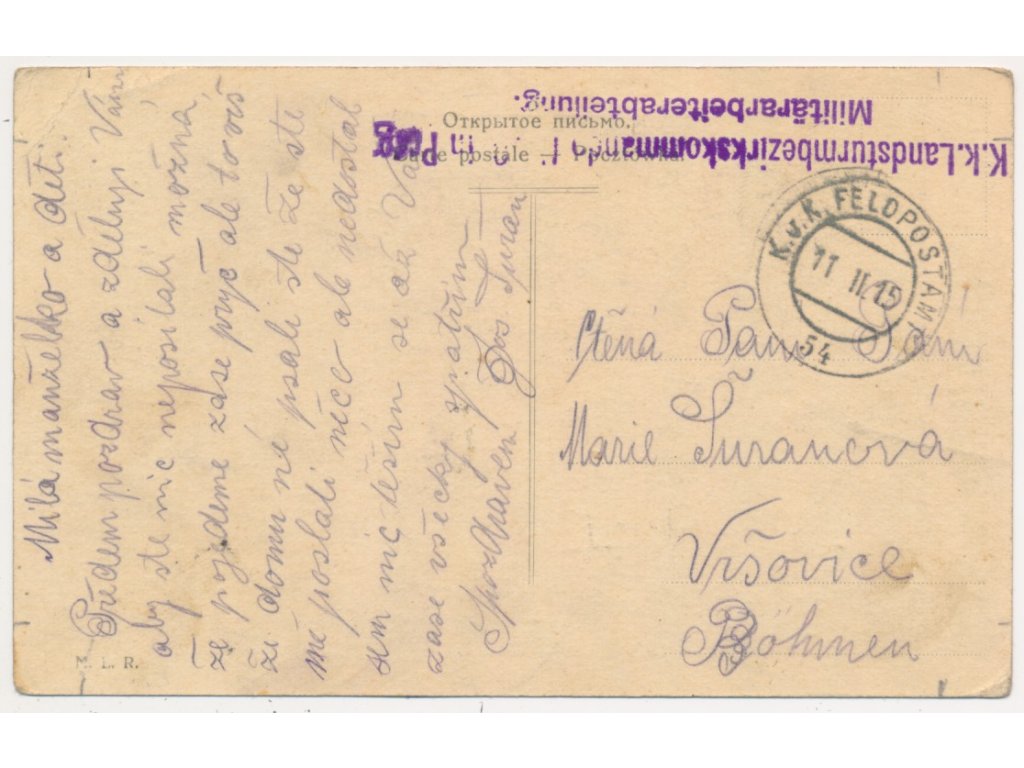 Milá manželko a děti.
Předem pozdrav a zděluji Vám
aby ste nic neposílali možná
že pojdeme zase pryč ale to víš
že domu né psali ste že ste
mě poslali něco ale nedostal
sem nic těším se až Vás
zase všecky spatřím
Spozdravem Jos. Šuran
Открытое письмо.
postale — Pocztówka.
K.k. Landsturmbezirkskommando in Prag
Militärarbeiterabteilung.
K.u.K. FELDPOSTAMT
11 II 15
54
Ctěná Paní
Marie Šuranová
Vršovice
Böhmen
M. L. R.